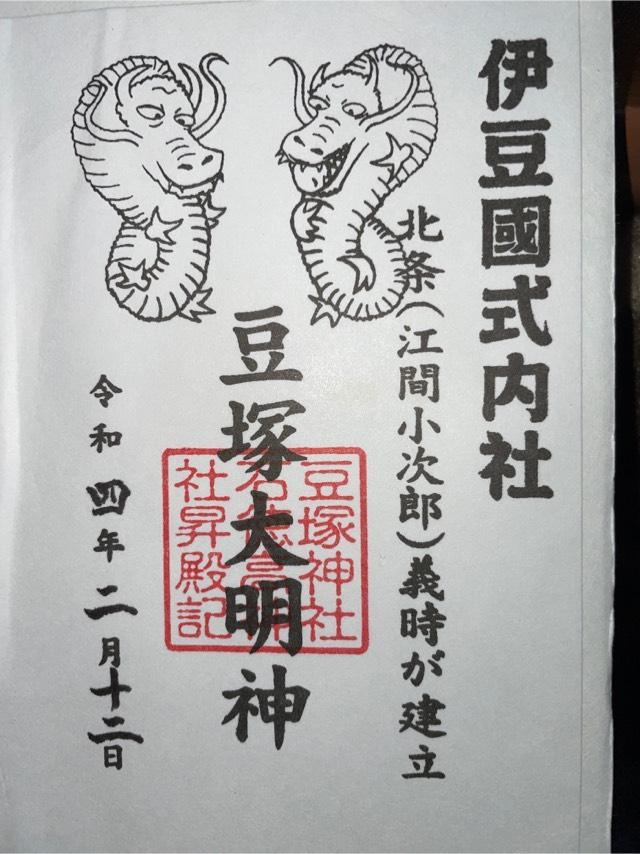 伊豆國式内社
北条(江間小次郎)義時が建立
豆塚大明神
豆塚神社
社昇殿記
令和四年二月十二日